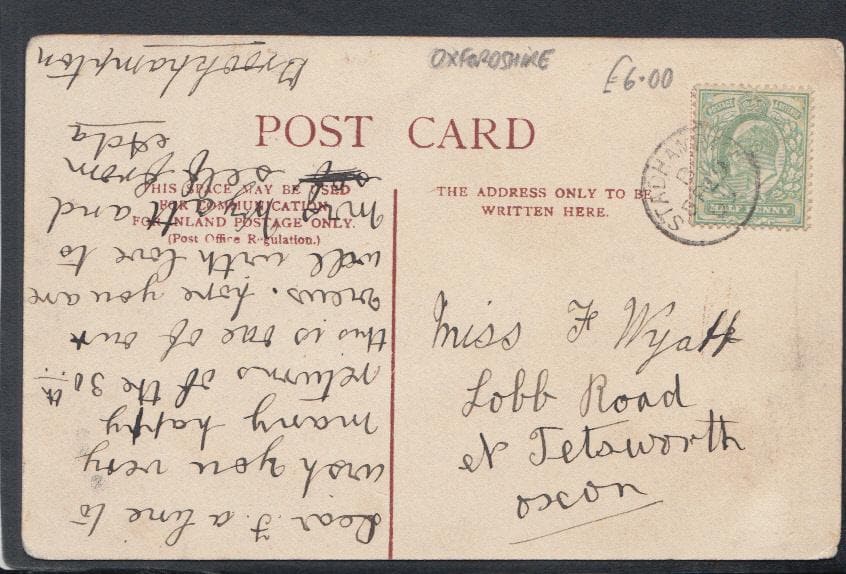 OXFORDSHIRE
£6.00
POST CARD
THIS SPACE MAY BE USED
FOR COMMUNICATION
FOR INLAND POSTAGE ONLY.
(Post Office Regulation.)
THE ADDRESS ONLY TO BE
WRITTEN HERE.
HALFPENNY
STADHAM
Miss F Wyatt
Lobb Road
Nr Tetsworth
Oxon
Dear F. a line to
wish you very
many happy
returns of the 30th
this is one of our
views. hope you are
well with love to
Mrs Wyatt and
self from
Ada
Brookhampton